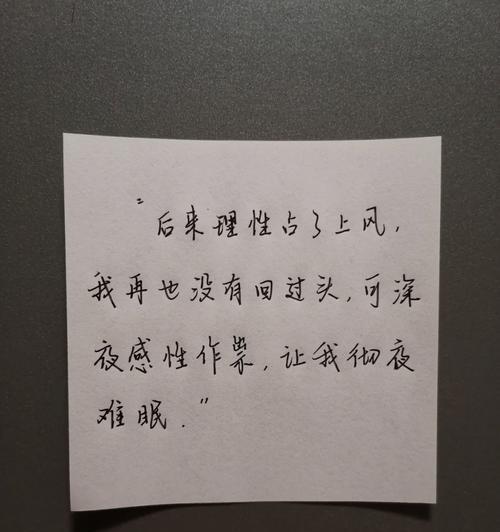 "后来理性占了上风,
我再也没有回过头,可深
夜感性作祟,让我彻夜
难眠."